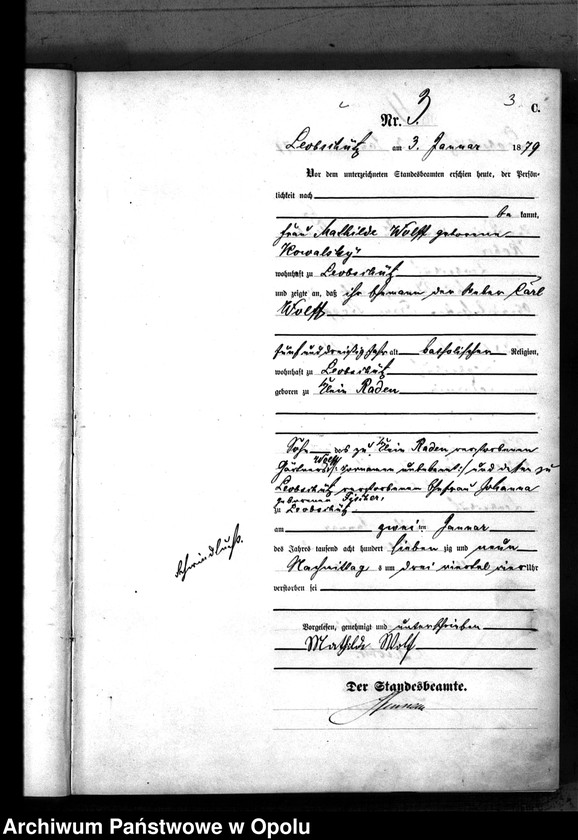 3 C.
Nr. 3.
Leobschütz am 3. Januar 1879
Vor dem unterzeichneten Standesbeamten erschien heute, der Persön-
lichkeit nach
be kannt,
Frau Mathilde Wolff geborene
Kowalsky
wohnhaft zu Leobschütz
und zeigte an, daß ihr Ehemann der Carl
Wolff
fünfunddreißig Jahr alt katholischer Religion,
wohnhaft zu Leobschütz
geboren zu Klein Raden
Sohn des zu Klein Raden verstorbenen
Gärtners Wolff, Vornamen unbekannt, und dessen zu
Leobschütz verstorbenen Ehefrau Johanna
geborenen Fischer,
zu Leobschütz
am zwei ten Januar
des Jahres tausend acht hundert sieben zig und neun
Nachmittag s um drei viertel vier Uhr
verstorben sei
Schwindsucht.
Vorgelesen, genehmigt und unterschrieben
Mathilde Wolf
Der Standesbeamte.
Archiwum Państwowe w Opolu